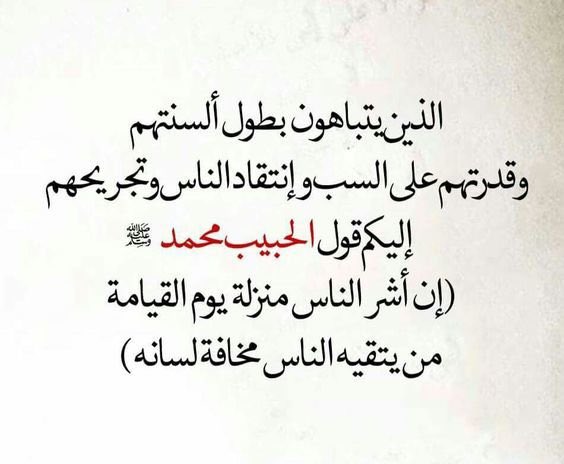 الذين يتباهون بطول ألسنتهم
وقدرتهم على السب وإنتقاد الناس وتجريحهم
إليكم قول الحبيب محمد ﷺ
(إن أشر الناس منزلة يوم القيامة
من يتقيه الناس مخافة لسانه)